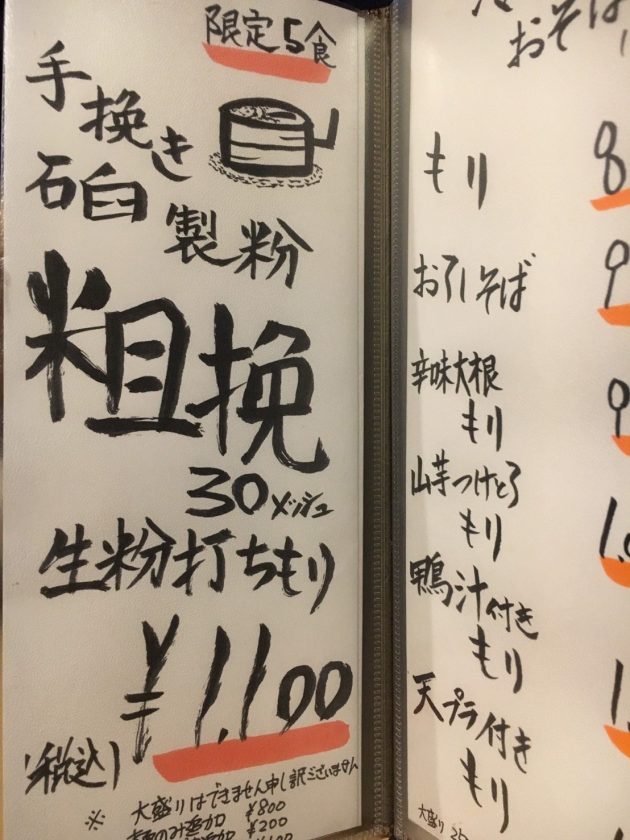 限定5食
手挽き
石臼
製粉
粗挽
30メッシュ
生粉打ちもり
¥1,100
(税込)
※ 大盛りはできません申し訳ございません
¥800
¥200
おそば
もり
8
おろしそば
9
辛味大根
もり
9
山芋つけとろ
もり
1,
鴨汁付き
もり
1,
天プラ付き
もり
大盛り